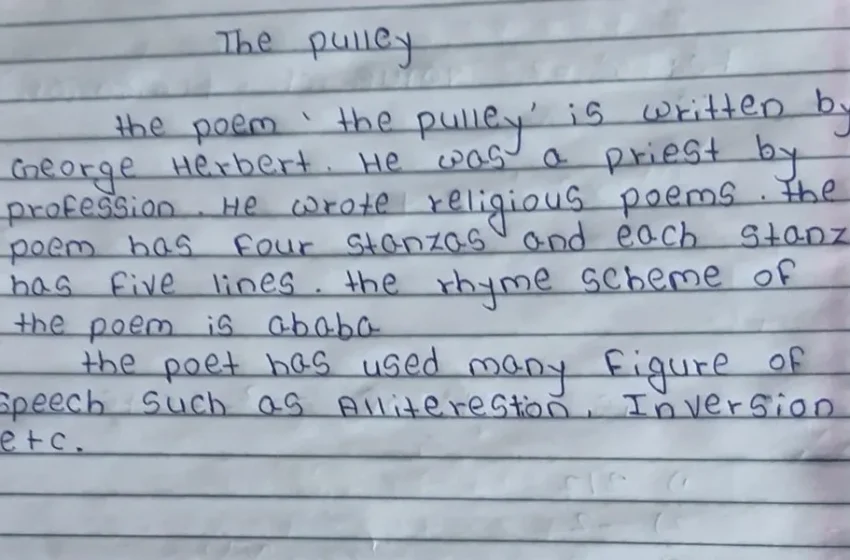 The pulley
the poem ' the pulley' is written by
George Herbert. He was a priest by
profession. He wrote religious poems. The
poem has four stanzas and each stanz
has five lines. the rhyme scheme of
the poem is ababa
the poet has used many figure of
speech such as Alliterestion, Inversion
etc.